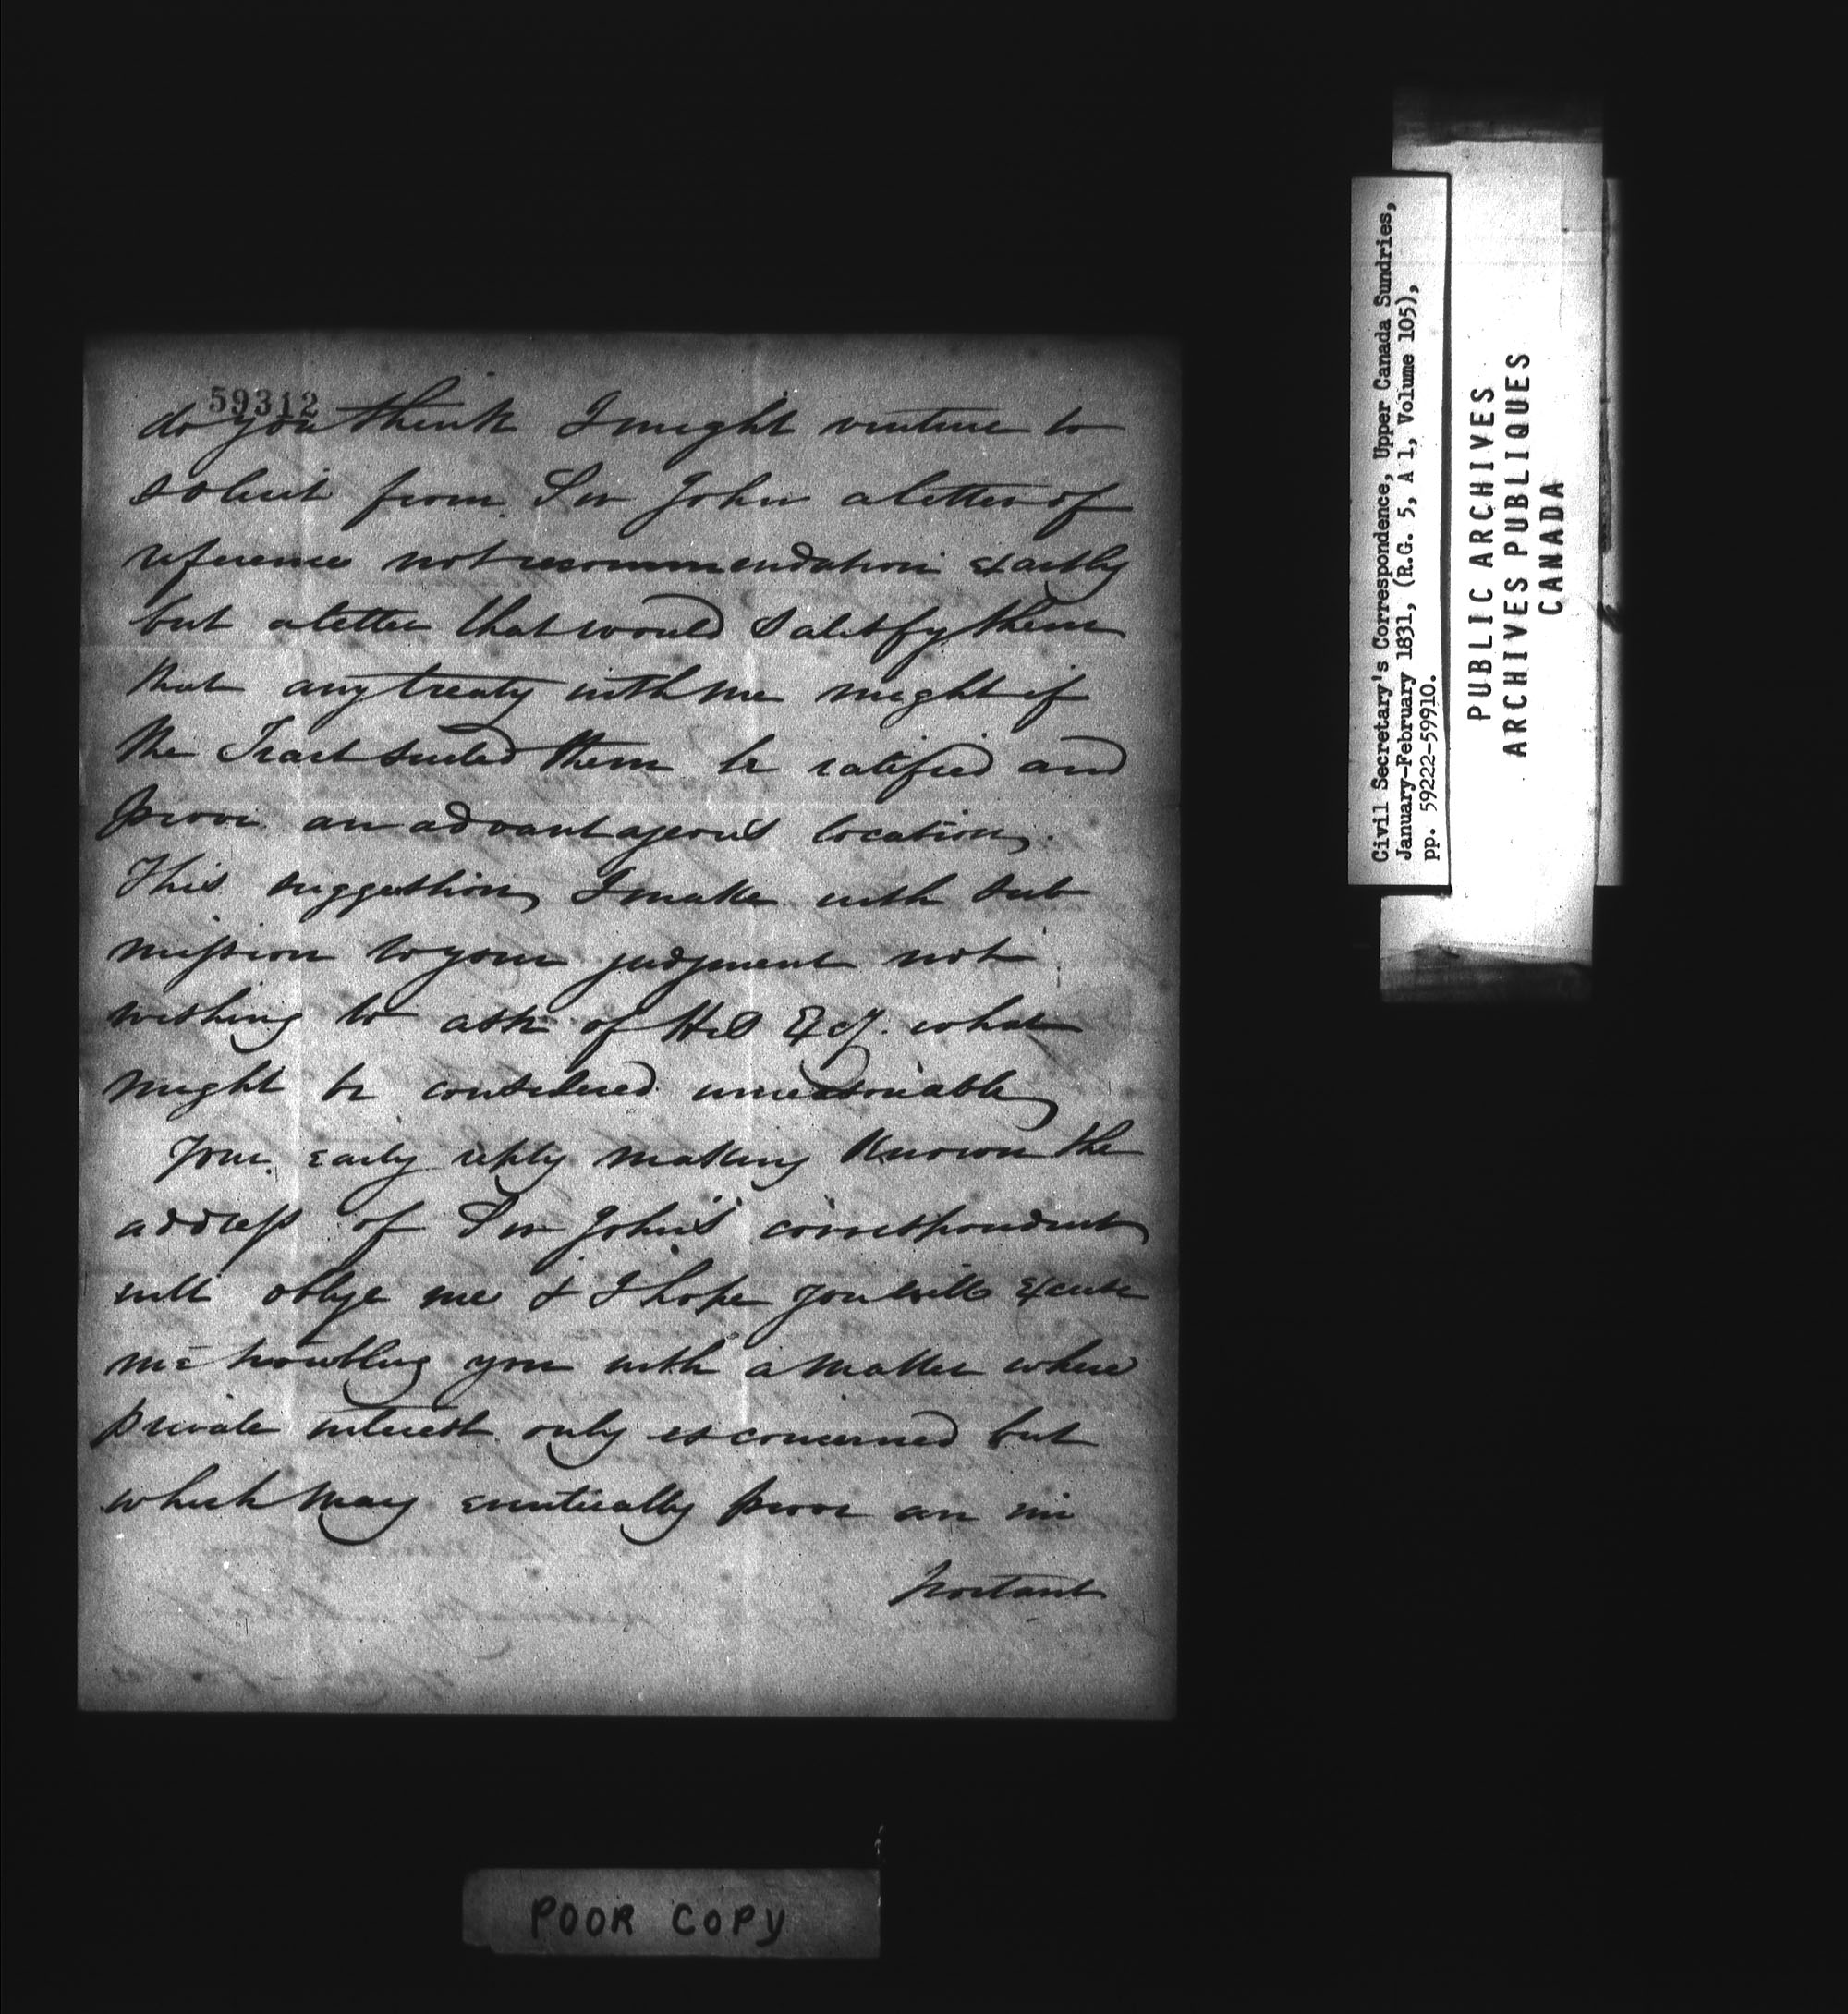 59312
do you think I might venture to
solicit from Sir John a letter of
reference not recommendation exactly
but a letter that would satisfy them
that any treaty with me might if
the Tract suited them be ratified and
prove an advantageous location.
This suggestion I make with sub
mission to your judgment not
wishing to ask of His Ecy. what
might be considered unreasonable
Your early reply making known the
address of Sir John's correspondent
will oblige me & I hope you will excuse
me troubling you with a matter where
private interest only is concerned but
which may eventually prove an im
portant
Civil Secretary's Correspondence, Upper Canada Sundries,
January-February 1831, (R.G. 5, A 1, Volume 105),
pp. 59222-59910.
PUBLIC ARCHIVES
ARCHIVES PUBLIQUES
CANADA
POOR COPY